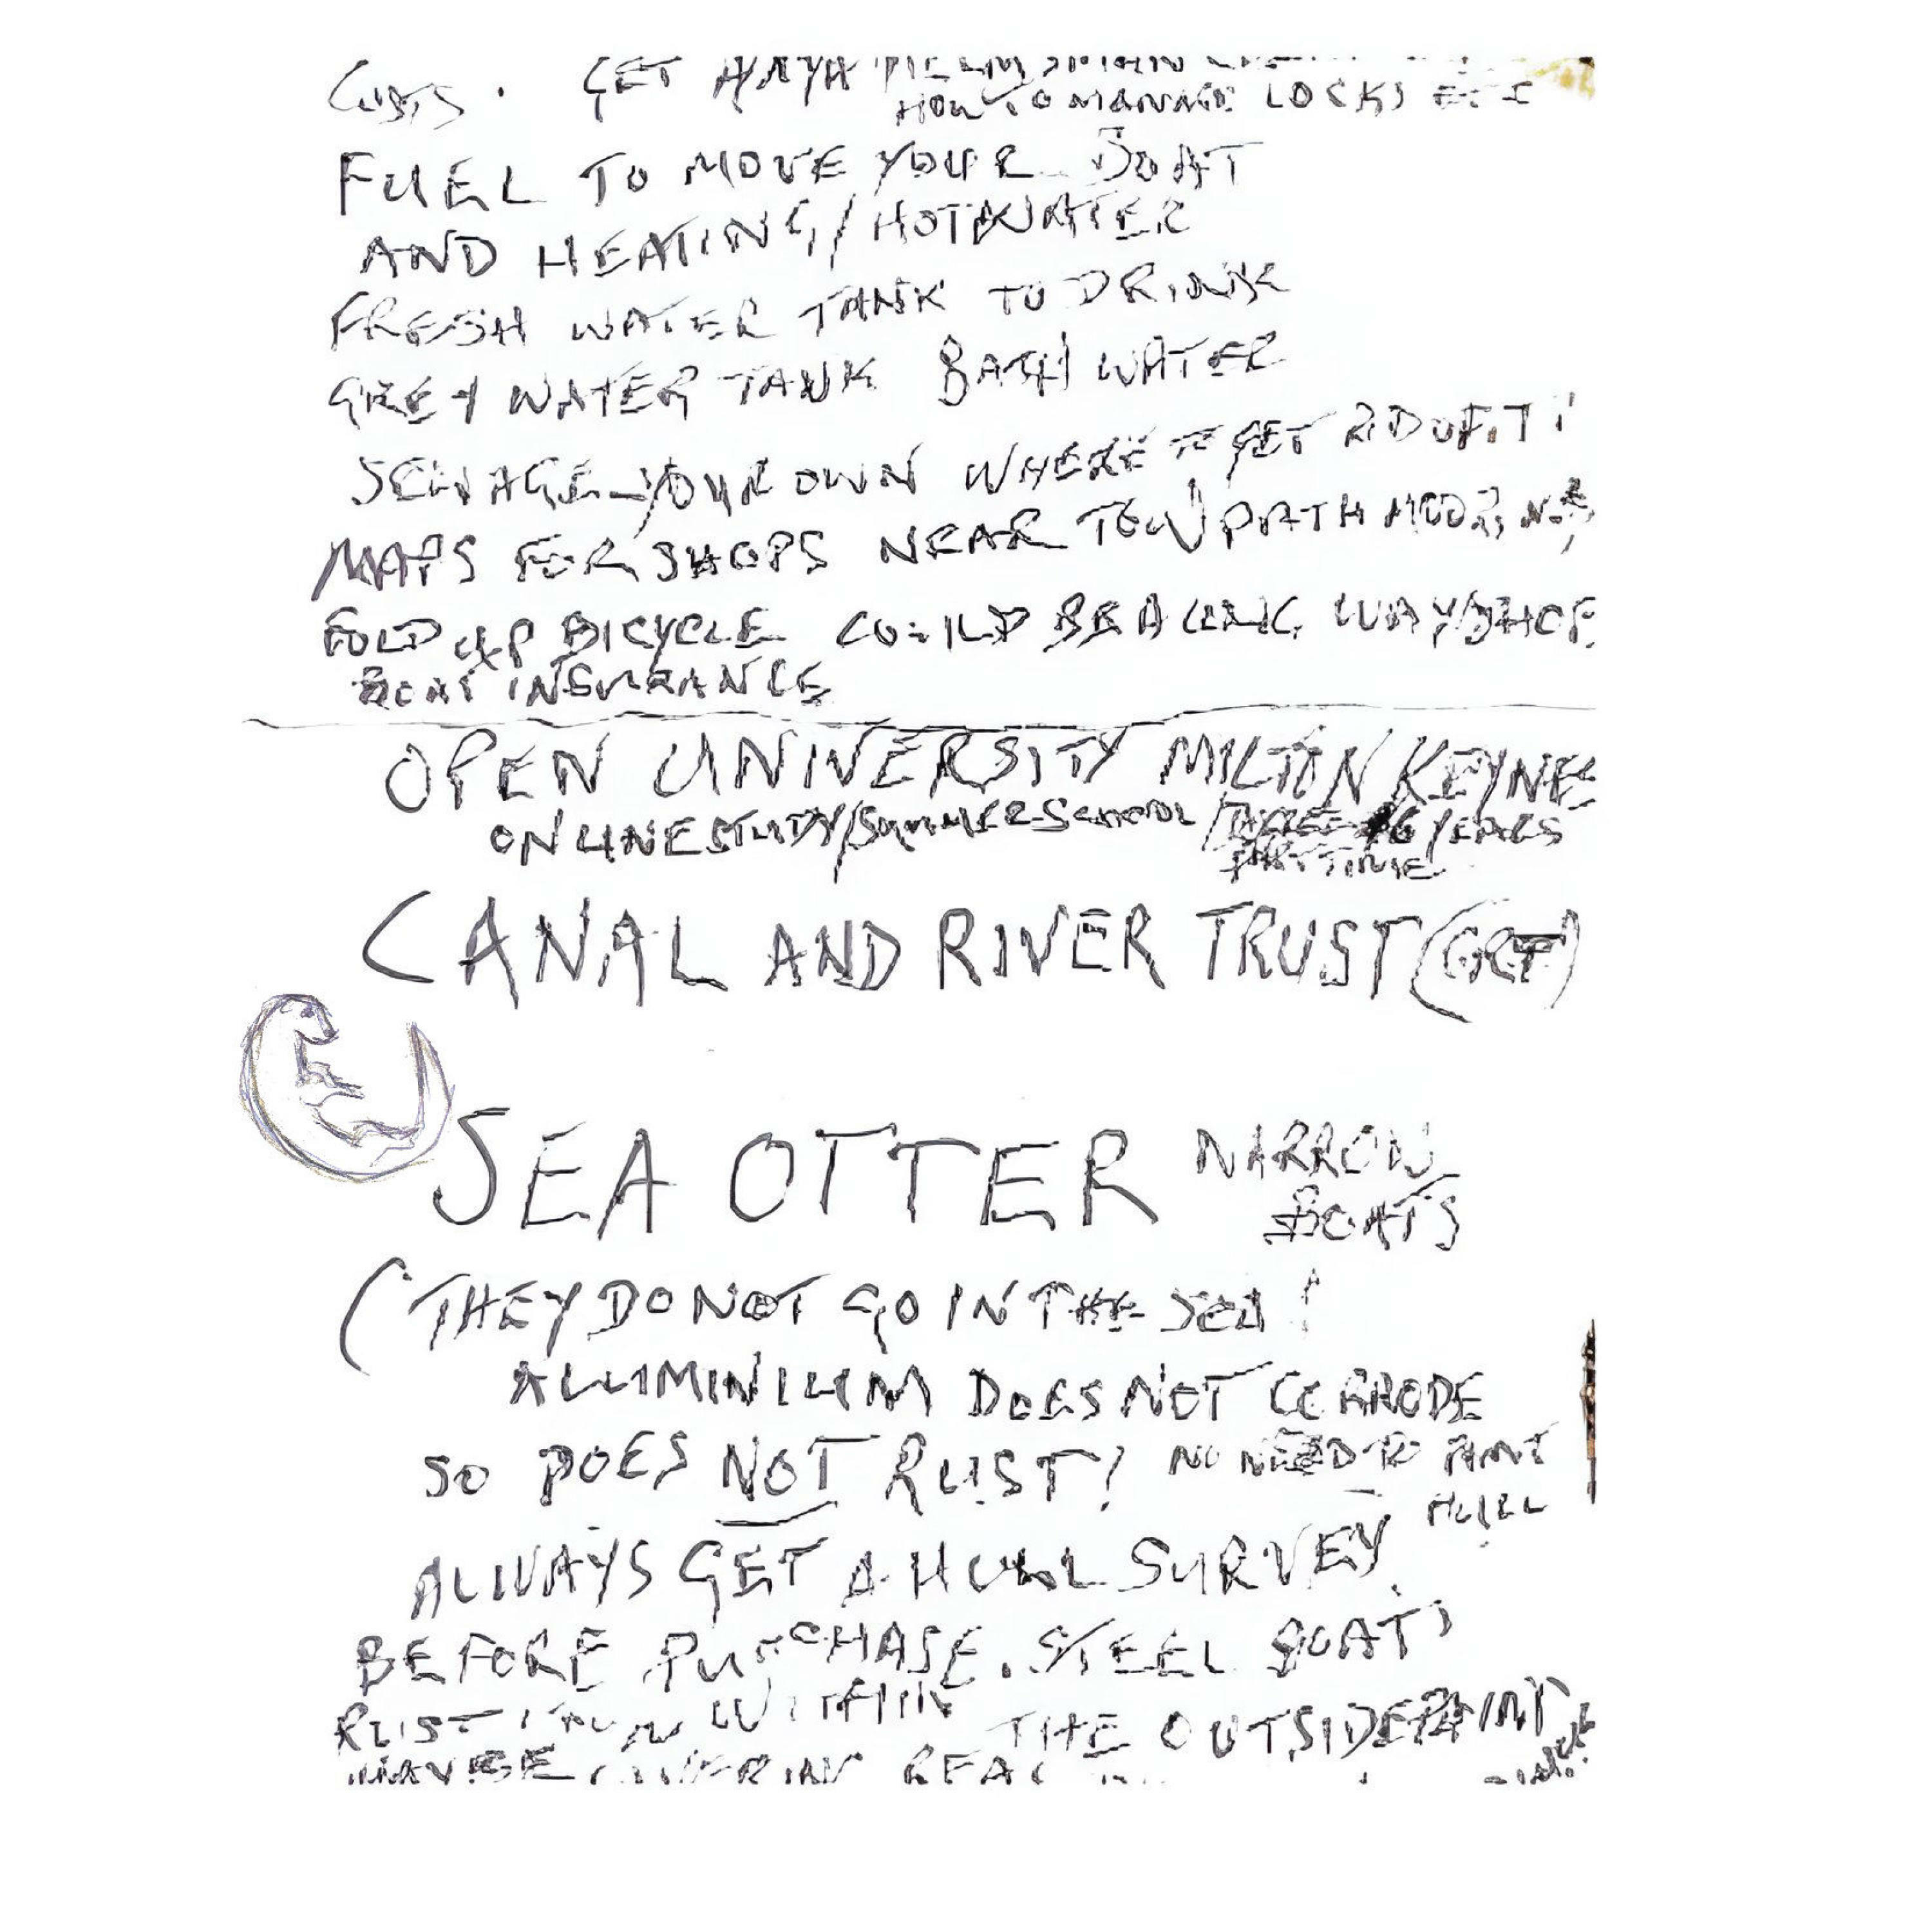 COSTS. GET
HOW TO MANAGE LOCKS ETC
FUEL TO MOVE YOUR BOAT
AND HEATING/HOT WATER
FRESH WATER TANK TO DRINK
GREY WATER TANK BATH WATER
SEWAGE YOUR OWN WHERE TO GET RID OF IT!
MAPS FOR SHOPS NEAR TOWPATH
FOLD UP BICYCLE COULD BE A LONG WAY/SHOP
BOAT INSURANCE
OPEN UNIVERSITY MILTON KEYNES
ONLINE STUDY/SUMMER SCHOOL/ 6 YEARS
PART TIME
CANAL AND RIVER TRUST
SEA OTTER NARROW
BOATS
(THEY DO NOT GO IN THE SEA!
ALUMINIUM DOES NOT CORRODE
SO DOES NOT RUST! NO NEED TO PAINT
HULL
ALWAYS GET A HULL SURVEY
BEFORE PURCHASE. STEEL BOATS
RUST WITHIN THE OUTSIDE PAINT